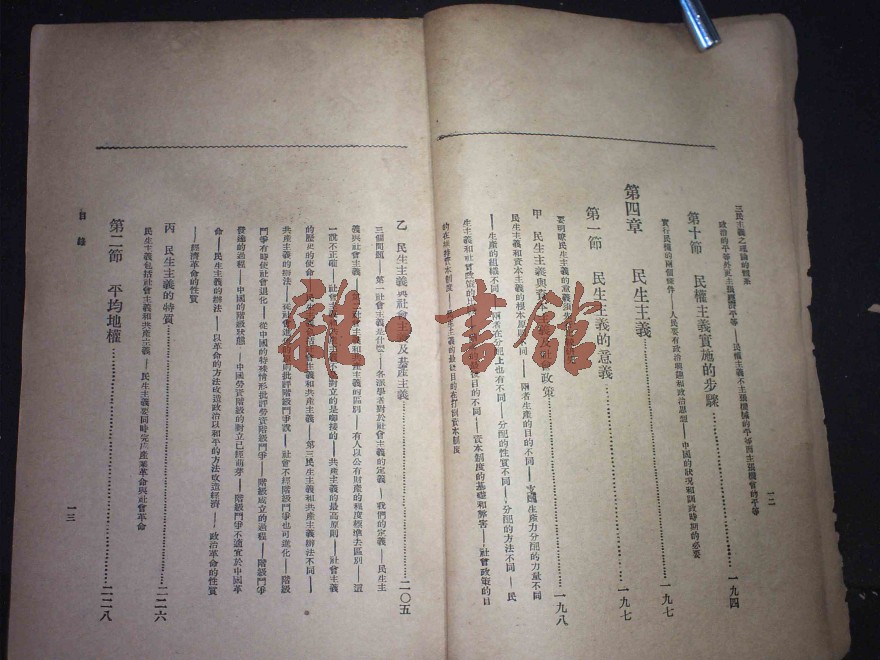 三民主義之理論的體系
一二
政治的平等外更主張經濟平等——民權主義不主張機械的平等而主張機會的平等
第十節　民權主義實施的步驟…………一九四
實行民權的兩個條件——人民要有政治興趣和政治思想——中國的狀況和訓政時期的必要
第四章　民生主義…………一九七
第一節　民生主義的意義…………一九七
要明瞭民生主義的意義
甲　民生主義與資本主義及社會政策…………一九八
民生主義和資本主義的根本原則不同——兩者生產的目的不同——生產力分配的力量不同
——生產的組織不同——兩者在分配上也有不同——分配的性質不同——分配的方法不同——民
生主義和社會政策的目的不同——資本制度的基礎和弊害——社會政策的目
的在維持資本制度——民生主義的最後目的在打倒資本制度
乙　民生主義與社會主義及共產主義…………二〇五
三個問題——第一社會主義是什麼——各派學者對於社會主義的定義——我們的定義——民生主
義與社會主義——第二社會主義和共產主義的區別——有人以公有財產的程度標準去區別——這
一說不正確——社會主義——共產主義的最高原則——社會主義
的歷史的使命——民生主義包括社會主義和共產主義——第三民生主義和共產主義辦法不同——
共產主義的辦法——從社會進化的原則批評階級鬥爭說——社會不經階級鬥爭也可進化——階級
鬥爭有時使社會退化——從中國的特殊情形批評勞資階級鬥爭——階級成立的過程——階級鬥爭
發達的過程——中國的階級狀態——中國勞資階級的對立已經萌芽——階級鬥爭不適宜於中國革
命——民生主義的辦法——以革命的方法改造政治以和平的方法改造經濟——政治革命的性質
——經濟革命的性質
丙　民生主義的特質…………二二六
民生主義包括社會主義和共產主義——民生主義要同時完成產業革命與社會革命
第二節　平均地權…………二二八
目錄
一三
雜·書館